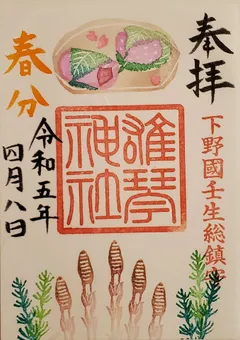 奉拝
下野國壬生総鎮守
雄琴神社
春分
令和五年
四月八日